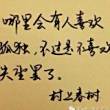 哪里会有人喜欢
孤独，不过是不喜欢
失望罢了。
村上春树